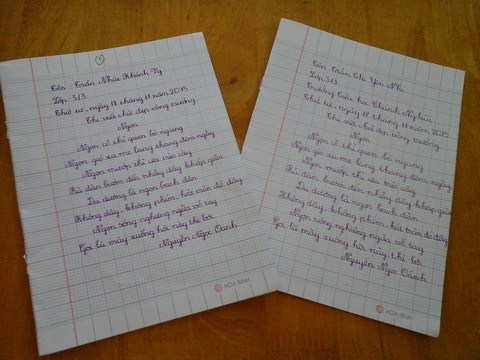 1
Tên: Trần Nhữ Khánh Vy
Lớp: 3/3
Thứ tư, ngày 11 tháng 11 năm 2015
Thi viết chữ đẹp vòng trường
Ngọn
Ngọn cỏ thì quen bò ngang
Ngọn gió xa mẹ lang thang đêm ngày
Ngọn mướp thì vừa vào cây
Thì đàn bướm đến nhảy dây khắp giàn
Du dương là ngọn bạch đàn
Không dây, không phím, hát tràn đó đây
Ngọn sóng nghiêng ngửa vỗ tay
Gọi là mây xuống hỏi này thì bơi
Nguyễn Ngọc Oánh
HOA BINH
Tên: Trần Thị Yến Nhi
Lớp: 3/3
Trường tiểu học Chánh Nghĩa
Thứ tư, ngày 11 tháng 11 năm 2015
Thi viết chữ đẹp vòng trường
Ngọn
Ngọn cỏ thì quen bò ngang
Ngọn gió xa mẹ lang thang đêm ngày
Ngọn mướp thì vừa vào cây
Thì đàn bướm đến nhảy dây khắp giàn
Du dương là ngọn bạch đàn
Không dây, không phím, hát tràn đó đây
Ngọn sóng nghiêng ngửa vỗ tay
Gọi là mây xuống hỏi này thì bơi
Nguyễn Ngọc Oánh
HOA BINH